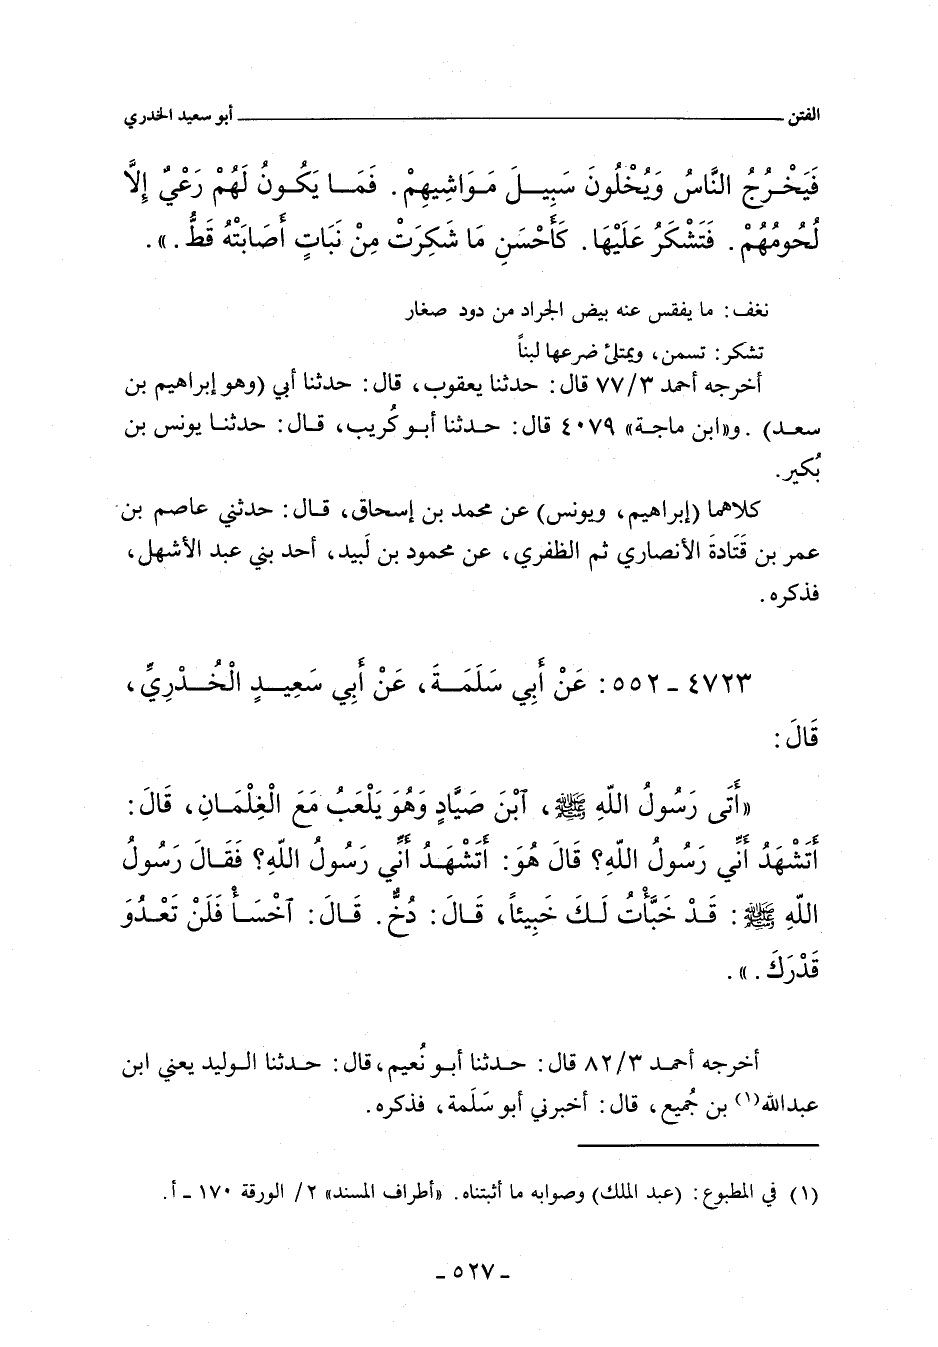 الفتن ــــــــــــــــ أبو سعيد الخدري
فَيَخْرُجُ النَّاسُ وَيُخْلُونَ سَبِيلَ مَوَاشِيهِمْ . فَمَا يَكُونُ لَهُمْ رَعْيٌ إِلَّا
لُحُومُهُمْ . فَتَشْكَرُ عَلَيْهَا . كَأَحْسَنِ مَا شَكِرَتْ مِنْ نَبَاتٍ أَصَابَتْهُ قَطُّ . » .
نغف : ما يفقس عنه بيض الجراد من دود صغار
تشكر : تسمن ، ويمتلئ ضرعها لبناً
أخرجه أحمد ٧٧/٣ قال : حدثنا يعقوب ، قال : حدثنا أبي (وهو إبراهيم بن
سعد) . و«ابن ماجة» ٤٠٧٩ قال : حدثنا أبو كُريب ، قال : حدثنا يونس بن
بُكير .
كلاهما (إبراهيم ، ويونس) عن محمد بن إسحاق ، قال : حدثني عاصم بن
عمر بن قَتَادةَ الأنصاري ثم الظفري ، عن محمود بن لَبيد ، أحد بني عبد الأشهل ،
فذكره .
٤٧٢٣ - ٥٥٢ : عَنْ أَبِي سَلَمَةَ ، عَنْ أَبِي سَعِيدٍ الْخُدْرِيِّ ،
قَالَ :
«أَتَى رَسُولُ اللَّهِ ﷺ ، ٱبْنَ صَيَّادٍ وَهُوَ يَلْعَبُ مَعَ الْغِلْمَانِ ، قَالَ :
أَتَشْهَدُ أَنِّي رَسُولُ اللَّهِ؟ قَالَ هُوَ : أَتَشْهَدُ أَنِّي رَسُولُ اللَّهِ؟ فَقَالَ رَسُولُ
اللَّهِ ﷺ : قَدْ خَبَّأْتُ لَكَ خَبِيئاً ، قَالَ : دُخٌّ . قَالَ : ٱخْسَأْ فَلَنْ تَعْدُوَ
قَدْرَكَ . » .
أخرجه أحمد ٨٢/٣ قال : حدثنا أبو نُعيم ، قال : حدثنا الوليد يعني ابن
عبدالله(١) بن جُميع ، قال : أخبرني أبو سَلَمة ، فذكره .
(١) في المطبوع : (عبد الملك) وصوابه ما أثبتناه . «أطراف المسند» ٢/ الورقة ١٧٠ - أ .
- ٥٢٧ -